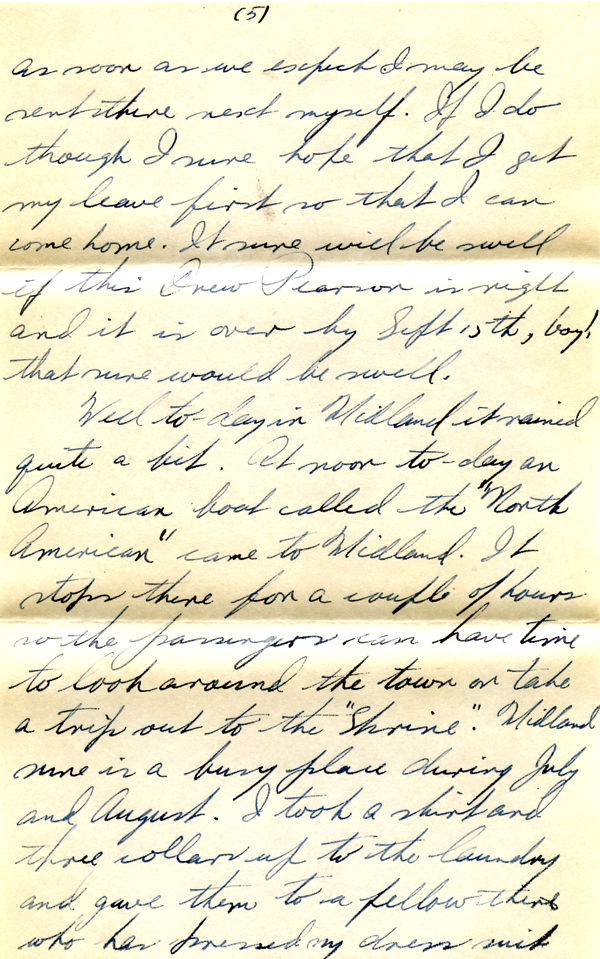 (5)
as soon as we expect I may be
sent there next myself. If I do
though I sure hope that I get
my leave first so that I can
come home. It sure will be swell
if this Drew Pearson is right
and it is over by Sept 15th, boy!
that sure would be swell.
Well to-day in Midland it rained
quite a bit. At noon to-day an
American boat called the "North
American" came to Midland. It
stops there for a couple of hours
so the passengers can have time
to look around the town or take
a trip out to the "Shrine". Midland
sure is a busy place during July
and August. I took a shirt and
three collars up to the laundry
and gave them to a fellow there
who has pressed my dress suit